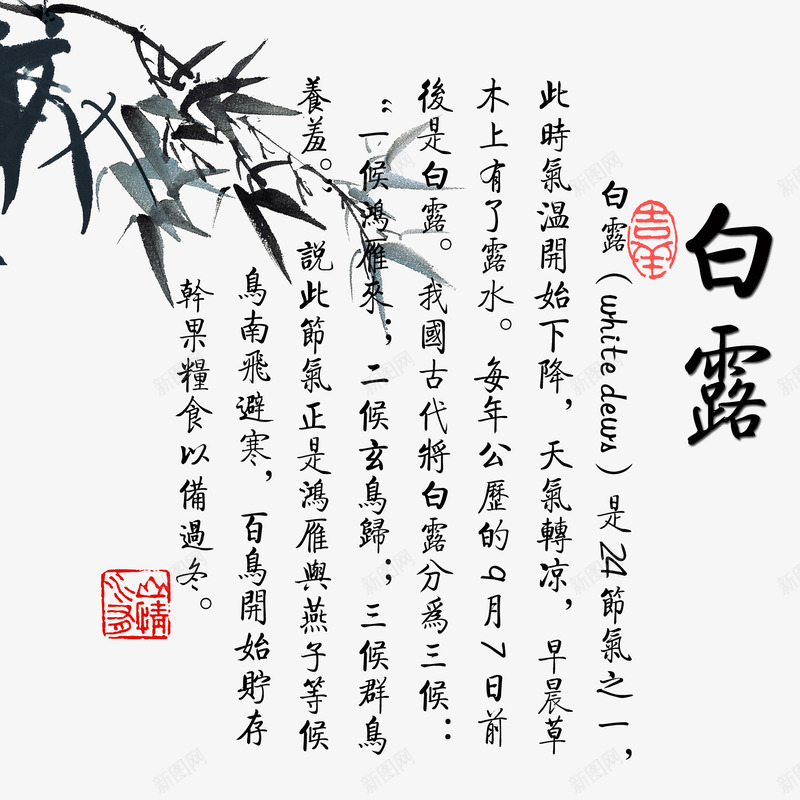 白露
吉祥
白露(white dews)是24節氣之一,
此時氣温開始下降,天氣轉凉,早晨草
木上有了露水。每年公歷的9月7日前
後是白露。我國古代將白露分爲三候:
“一候鴻雁來;二候玄鳥歸;三候群鳥
養羞。”
説此節氣正是鴻雁與燕子等候
鳥南飛避寒,百鳥開始貯存
幹果糧食以備過冬。
新图网